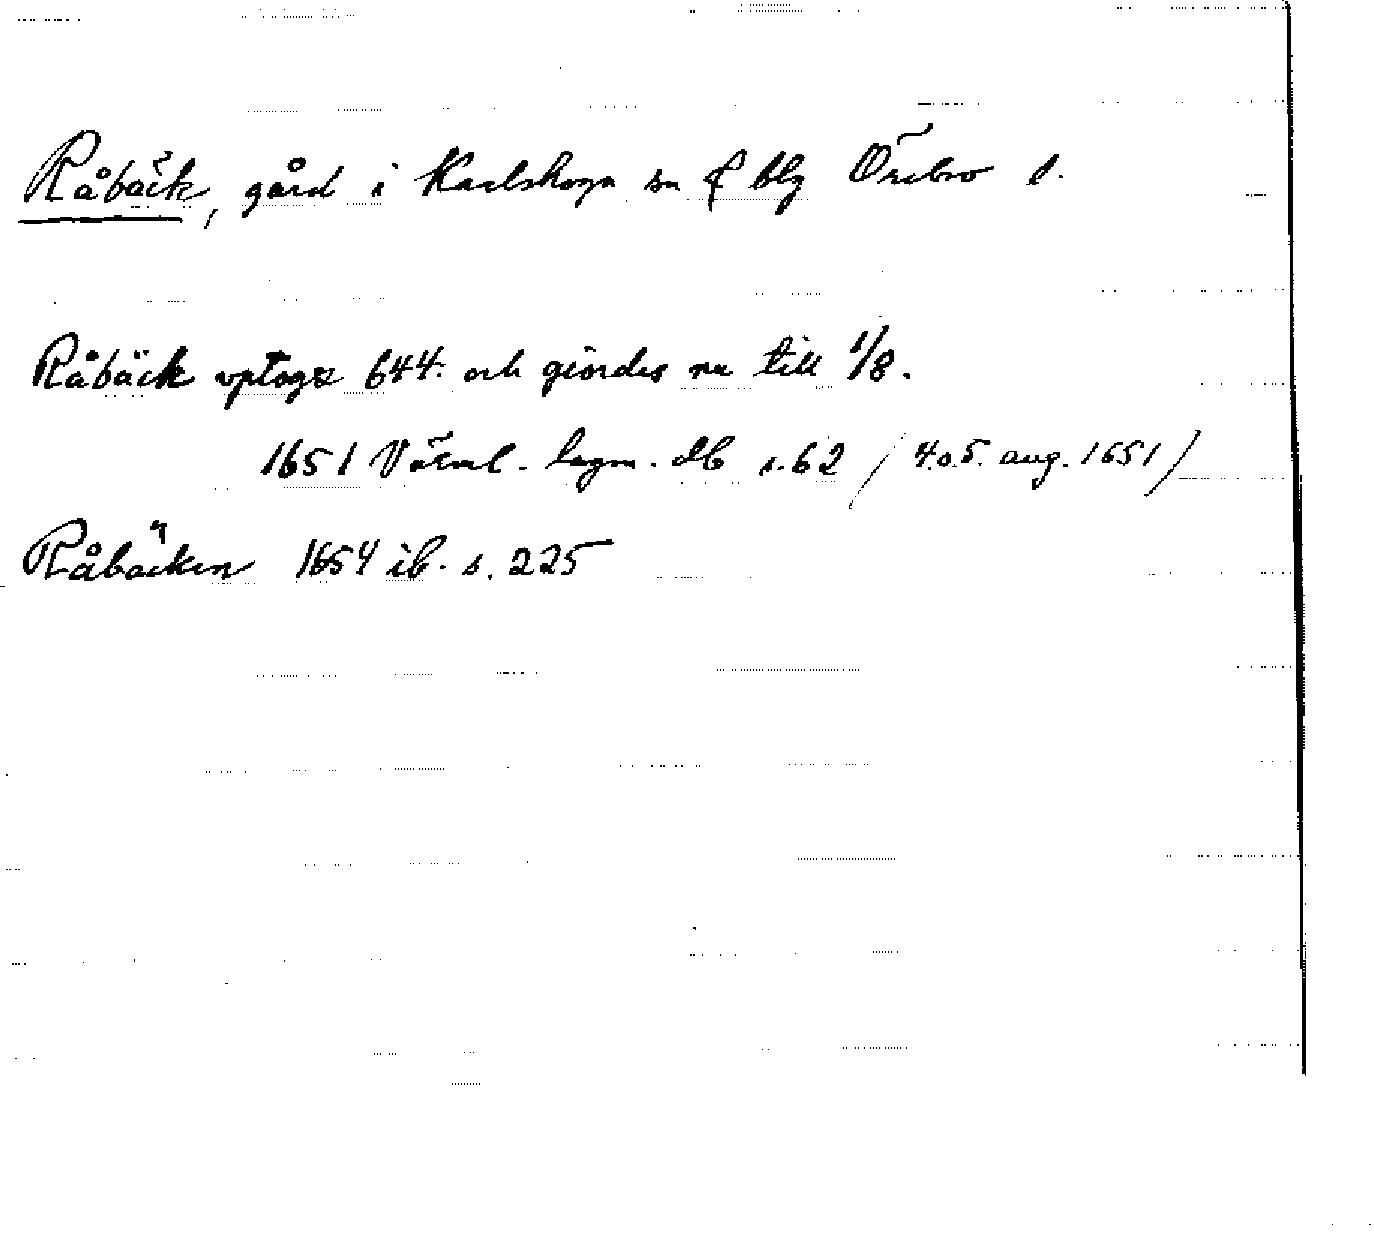 Råbäck, gård i Karlskoga sn o blg Örebro l.
Råbäck vptogz 644. och giördes nu till 1/8.
1651 Värml. lagm. db s. 62 / 4. o. 5. aug. 1651 /
Råbäcken 1654 ib. s. 225